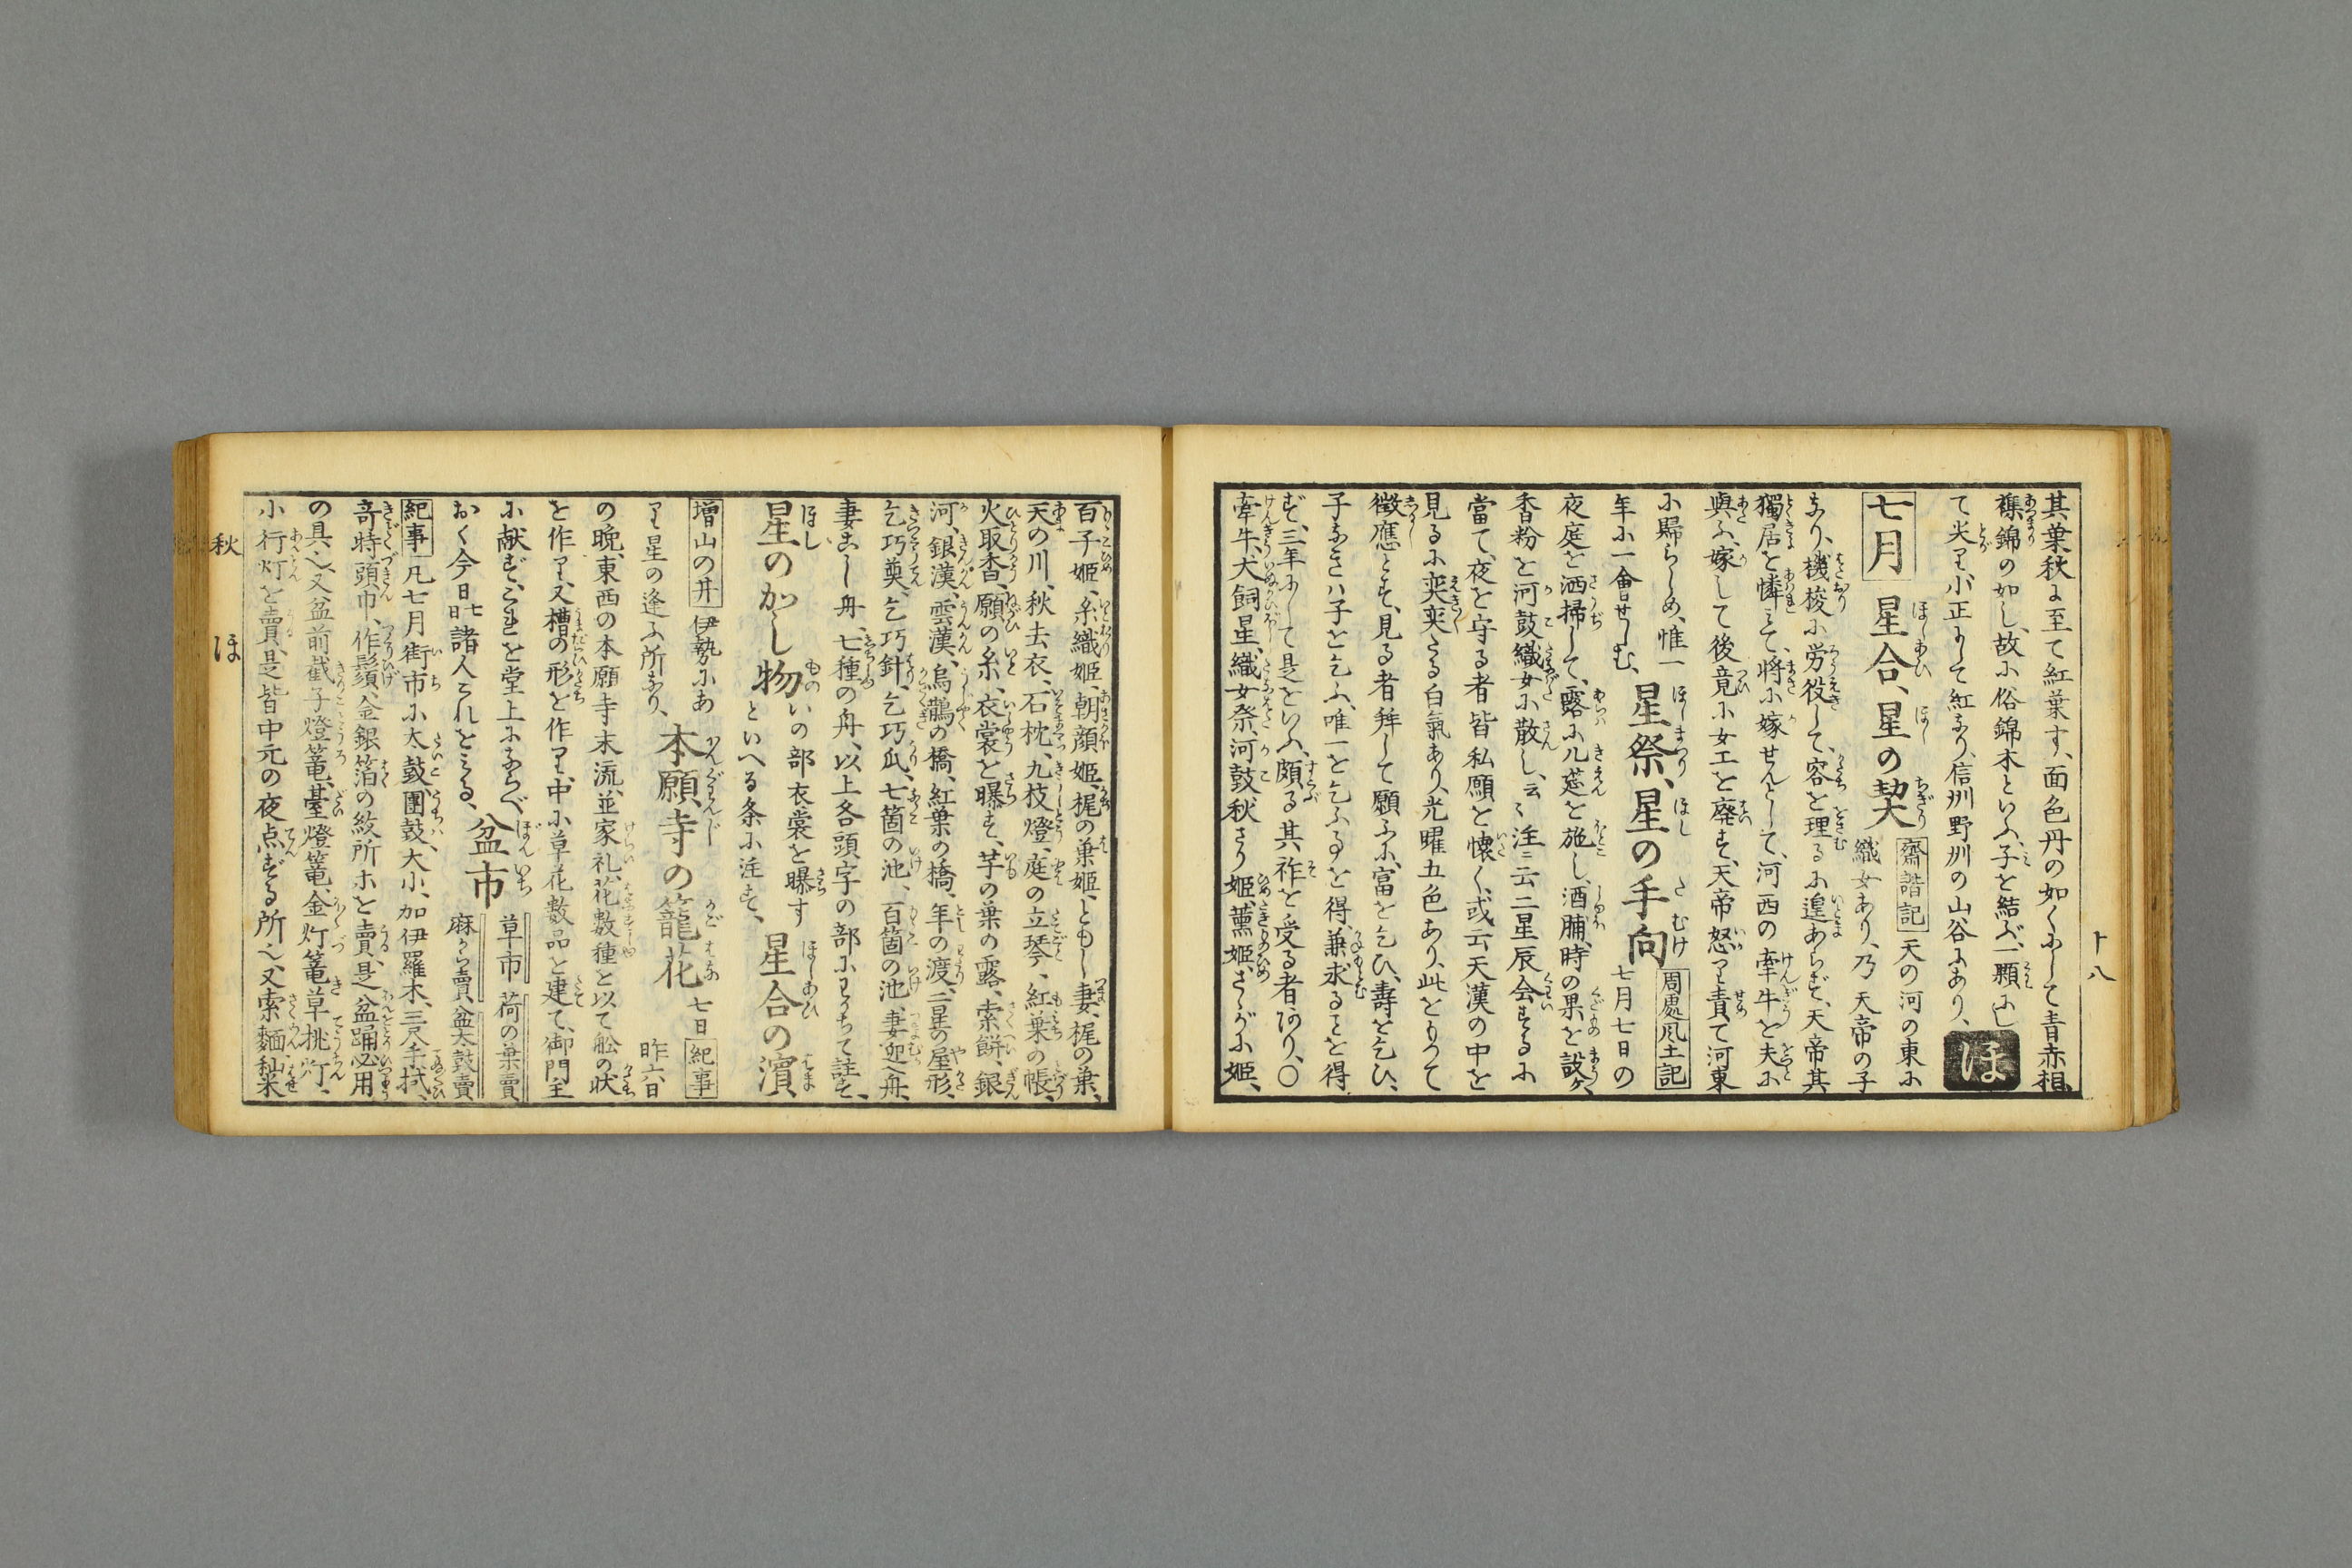 十八
其葉秋に至て紅葉す、面色丹の如くにして青赤相
襍錦の如し、故に俗錦木といふ、子を結ぶ、一顆に
て尖り小正にして紅なり、信州野州の山谷にあり、
ほ
七月 星合、星の契 齋諧記 天の河の東に
織女あり、乃 天帝の子
なり、機梭に労役して、容を理るに遑あらず、天帝其
獨居を憐て、将に嫁せんとして、河西の牽牛を夫に
與ふ、嫁して後竟に女工を廃す、天帝怒り責て河東
に歸らしめ、惟一
年に一會せしむ、
星祭、星の手向 周處風土記
七月七日の
夜庭を洒掃して、露に几莚を施し、酒脯、時の果を設ケ、
香粉を河鼓織女に散し、云々 注ニ云二星辰会するに
當て、夜を守る者皆私願を懐く、或云天漢の中を
見るに奕奕たる白氣あり、光曜五色あり、此をもつて
徴應とす、見る者拜して願ふに、富を乞ひ、壽を乞ひ、
子なきハ子を乞ふ、唯一を乞ふるを得、兼求るを得
ず、三年にして是をいふ、頗る其祚を受る者あり、〇
牽牛、犬飼星、織女祭、河鼓秋さり姫、薫姫、さゝがに姫、
百子姫、糸織姫、朝顔姫、梶の葉姫、ともし妻、梶の葉、
天の川、秋去衣、石枕、九枝燈、庭の立琴、紅葉の帳、
火取香、願の糸、衣裳を曝す、芋の葉の露、索餅、銀
河、銀漢、雲漢、烏鵲の橋、紅葉の橋、年の渡、二星の屋形、
乞巧奠、乞巧針、乞巧瓜、七箇の池、百箇の池、妻迎へ舟、
妻こし舟、七種の舟、以上各頭字の部にわかちて註す、
星のかし物 いの部衣裳を曝す
といへる条に注す、
星合の濱
増山の井 伊勢にあ
り星の逢ふ所なり、
本願寺の籠花 七日 紀事
昨六日
の晩、東西の本願寺末流、並家礼、花数種を以て舩の状
を作り、又槽の形を作り、中に草花数品を建て、御門主
に献ず、これを堂上にならべ
おく今日七日諸人これをみる、
盆市 草市 荷の葉賣
麻から賣、盆太鼓賣
紀事 凡七月街市に太鼓、團鼓、大小、加伊羅木、三尺手拭、
竒時頭巾、作鬚、金銀箔の紋所ホを賣、是盆踊必用
の具也又盆前截子燈篭、臺燈篭、金灯篭草挑灯、
小行灯を賣、是皆中元の夜点ずる所也、又索麺秈米
秋 ほ